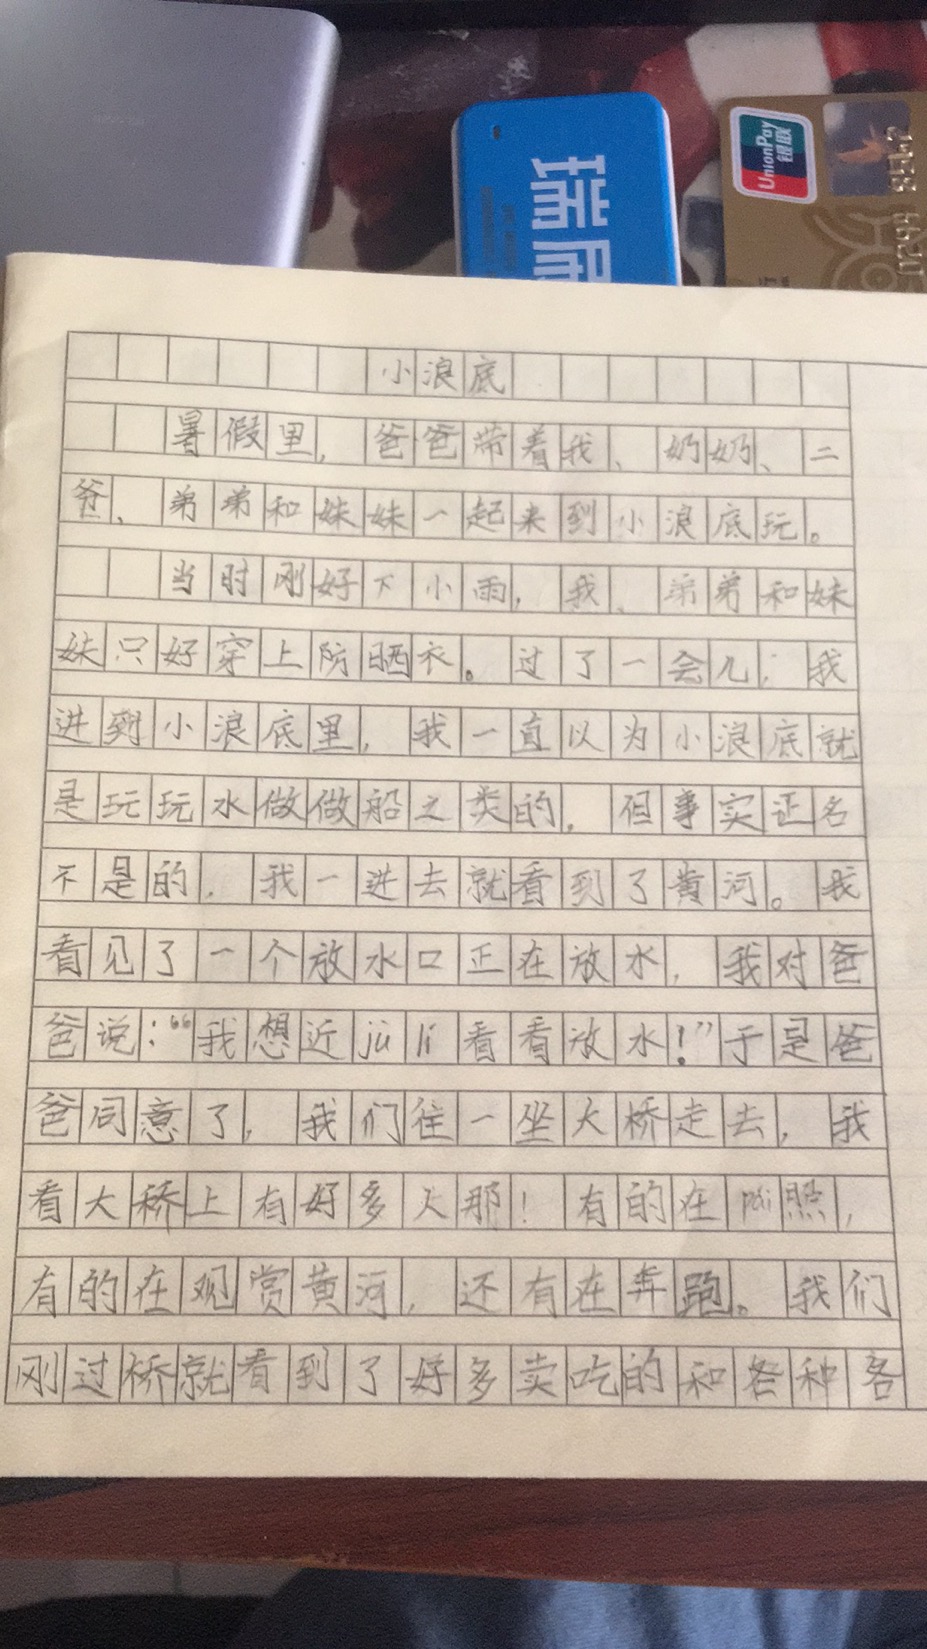 UnionPay
银联
瑞
小浪底
暑假里，爸爸带着我、奶奶、二
爸、弟弟和妹妹一起来到小浪底玩。
当时刚好下小雨，我、弟弟和妹
妹只好穿上防晒衣。过了一会儿，我
进到小浪底里，我一直以为小浪底就
是玩玩水做做船之类的，但事实证名
不是的，我一进去就看到了黄河。我
看见了一个放水口正在放水，我对爸
爸说：“我想近jù lí看看放水！”于是爸
爸同意了，我们往一坐大桥走去，我
看大桥上有好多人那！有的在pāi照，
有的在观赏黄河，还有在奔跑。我们
刚过桥就看到了好多卖吃的和各种各